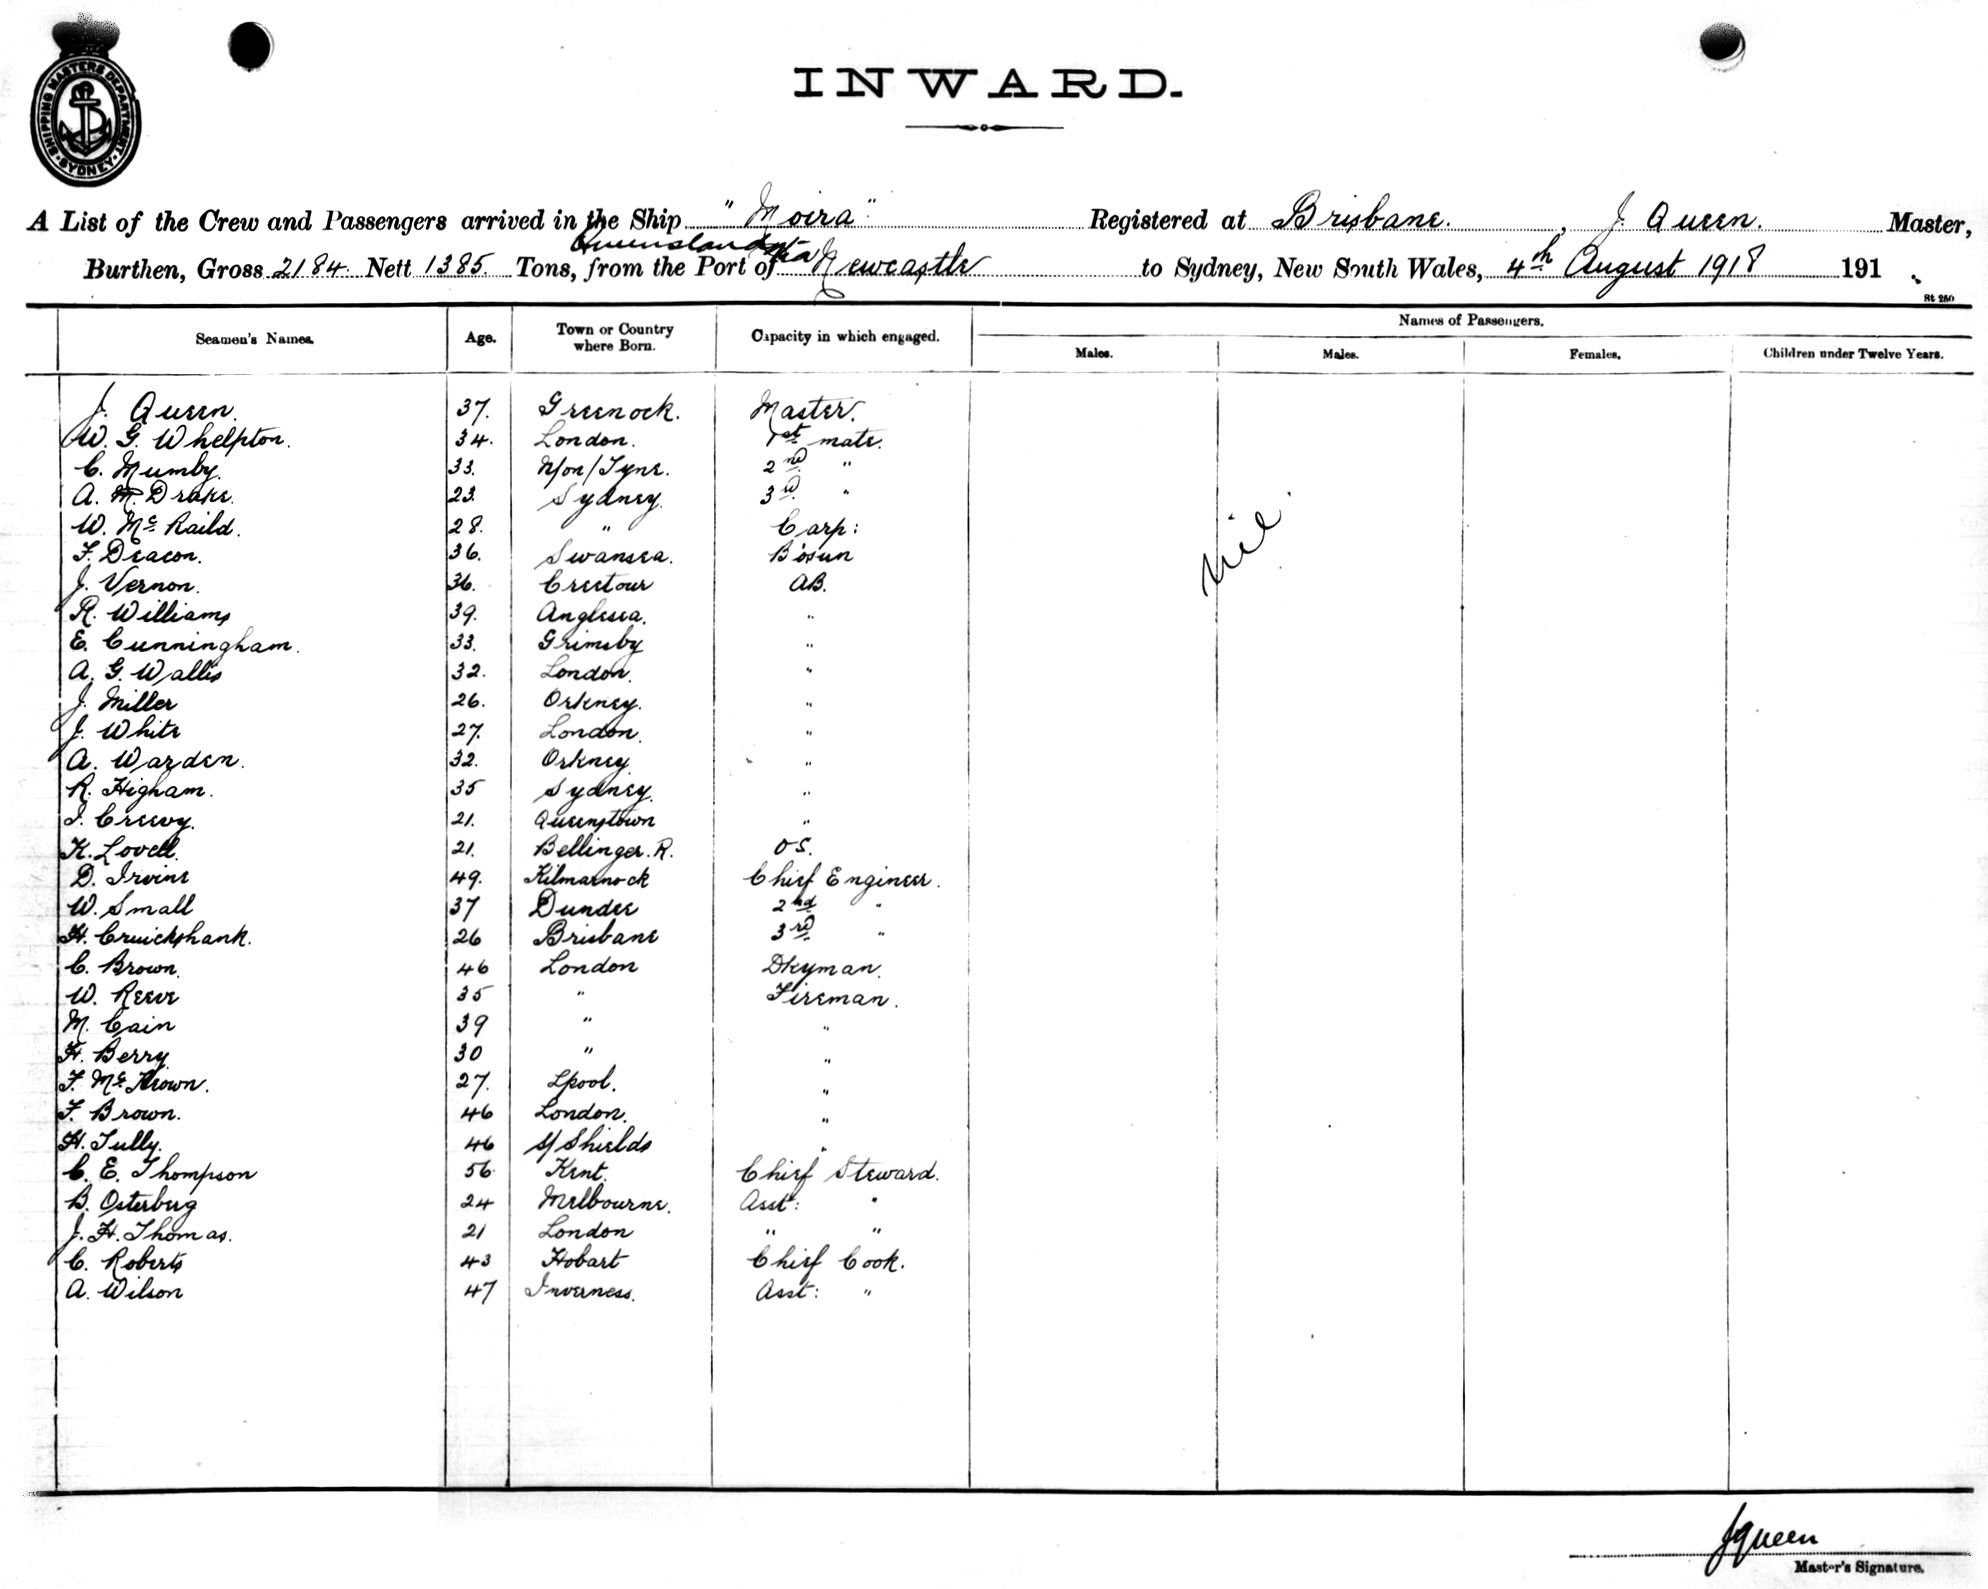 SHIPPING MASTERS DEPARTMENT
SYDNEY
INWARD.
A List of the Crew and Passengers arrived in the Ship "Moira" Registered at Brisbane. , J. Queen. Master,
Queensland Pts via
Burthen, Gross 2184. Nett 1385. Tons, from the Port of Newcastle to Sydney, New South Wales, 4th August 1918 191 .
St 250
Seamen's Names. Age. Town or Country where Born. Capacity in which engaged. Names of Passengers.
Males. Males. Females. Children under Twelve Years.
J. Queen. 37. Greenock. Master.
W. G. Whelpton. 34. London. 1st mate.
C. Mumby. 33. N/on/Tyne. 2nd "
A. M. Drake. 23. Sydney. 3rd "
W. McRaild. 28. " Carp:
F. Deacon. 36. Swansea. Bosun
J. Vernon. 36. Creetour AB.
R. Williams 39. Anglesea. "
E. Cunningham. 33. Grimsby "
A. G. Wallis 32. London. "
J. Miller 26. Orkney. "
J. White 27. London. "
A. Warden. 32. Orkney "
R. Higham. 35 Sydney. "
J. Creevy. 21. Queenstown "
K. Lovell. 21. Bellinger. R. OS.
D. Irvine 49. Kilmarnock Chief Engineer.
W. Small 37 Dundee 2nd "
H. Cruickshank. 26 Brisbane 3rd "
C. Brown. 46 London Dkyman.
W. Reeve 35 " Fireman.
M. Cain 39 " "
H. Berry 30 " "
F. McKeown. 27. Lpool. "
F. Brown. 46 London. "
H. Tully. 46 S/Shields "
C. E. Thompson 56 Kent. Chief Steward.
B. Osterberg 24 Melbourne. Asst: "
J. H. Thomas. 21 London " "
C. Roberts 43 Hobart Chief Cook.
A. Wilson 47 Inverness. Asst: "
Nil
J Queen
Master's Signature.